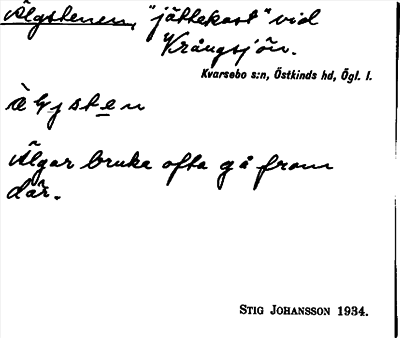 Älgstenen, "jättekast" vid
Krångsjön.
Kvarsebo s:n, Östkinds hd, Ögl. l.
Älgar bruka ofta gå fram
där.
STIG JOHANSSON 1934.